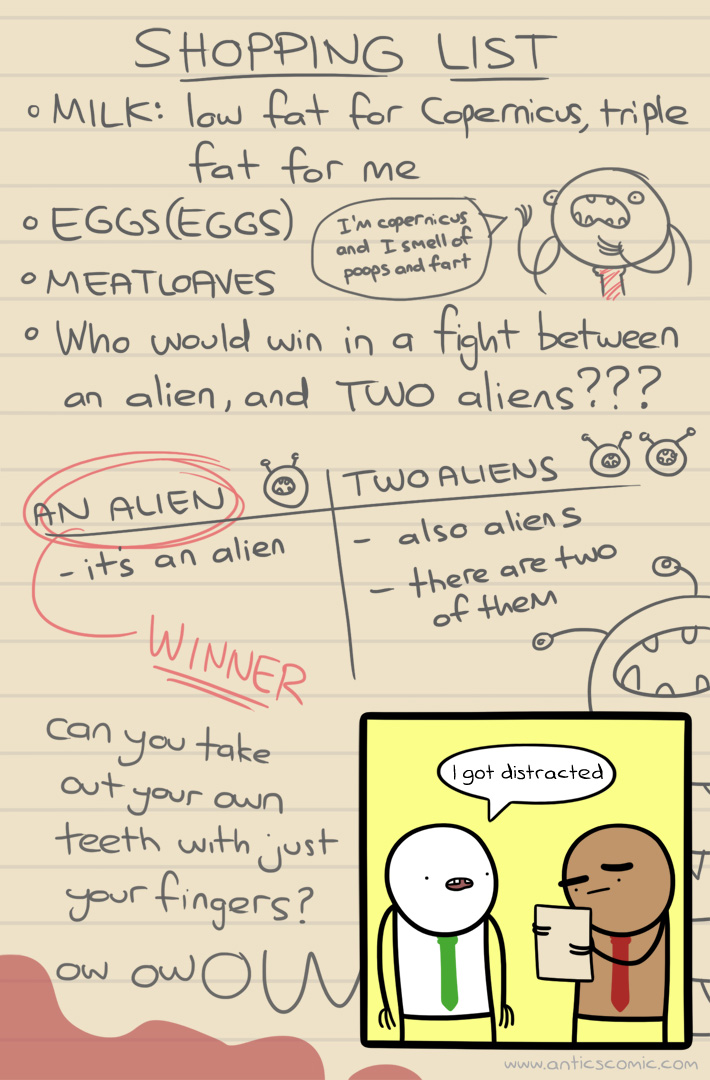 SHOPPING LIST
• MILK: low fat for Copernicus, triple
fat for me
• EGGS (EGGS)
I'm copernicus
and I smell of
poops and fart
• MEATLOAVES
• Who would win in a fight between
an alien, and TWO aliens???
AN ALIEN
TWO ALIENS
- it's an alien
- also aliens
- there are two
of them
WINNER
can you take
out your own
teeth with just
your fingers?
ow ow OW
I got distracted
www.anticscomic.com